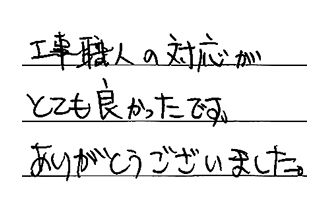 工事職人の対応が
とても良かったです。
ありがとうございました。